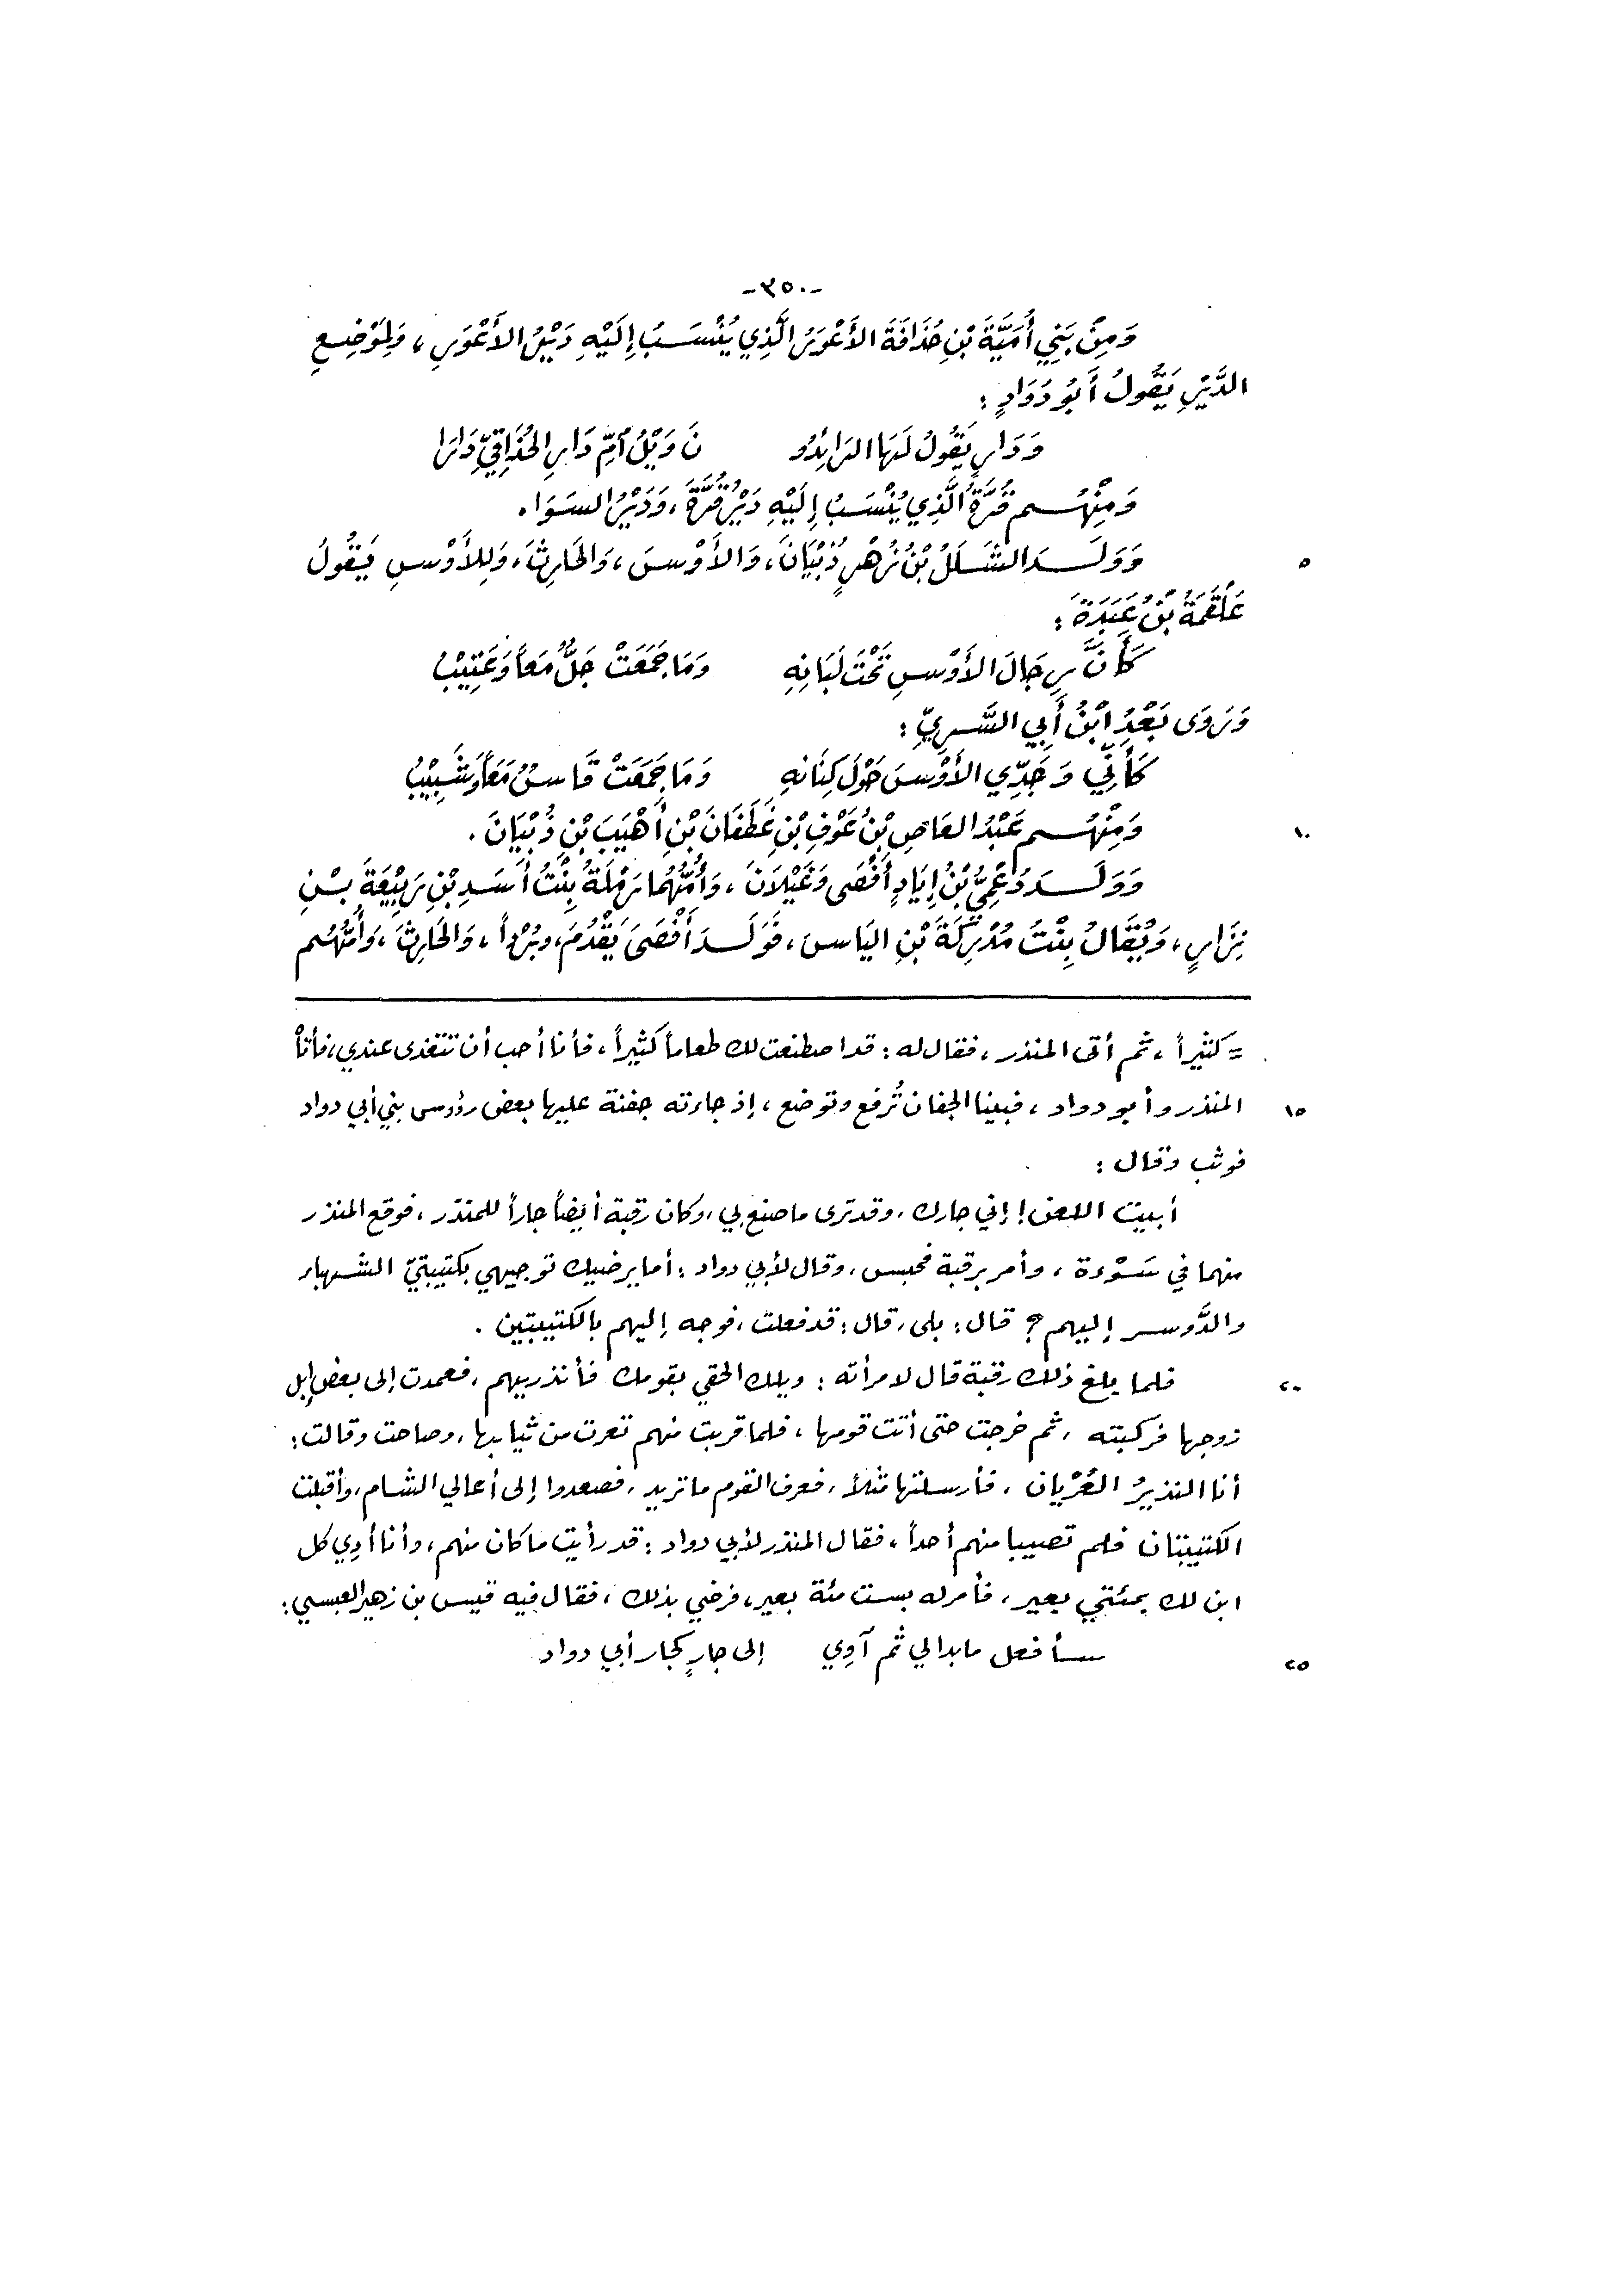 -٣٥٠-
وَمِنْ بَنِي أُمَيَّةَ بْنِ حُذَافَةَ الأَعْوَرُ الَّذِي يُنْسَبُ إِلَيْهِ دَيْرُ الأَعْوَرِ، وَلِمَوْضِعِ
الدَّيْرِ يَقُولُ أَبُو دُوَادٍ:
وَدَارٍ يَقُولُ لَهَا الرَائِدُو نَ وَيْلُ آمِّ دَارِ الحُذَاقِيِّ دَارَا
وَمِنْهُم قُرَّةُ الَّذِي يُنْسَبُ إِلَيْهِ دَيْرُ قُرَّةَ، وَدَيْرُ السَوَا.
٥ وَوَلَدَ الشَلَلُ بْنُ زُهْرٍ ذُبْيَانَ، وَالأَوْسَ، وَالحَارِثَ، وَلِلأَوْسِ يَقُولُ
عَلْقَمَةُ بْنُ عَبَدَةَ:
كَأَنَّ رِجَالَ الأَوْسِ تَحْتَ لَبَانِهِ وَمَا جَمَعَتْ جَلٌّ مَعاً وَعَتِيْبُ
وَرَوَى بَعْدُ ابْنُ أَبِي السَّرِيِّ:
كَأَنِّي وَجَدِّي الأَوْسَ حَوْلَ كِنَانِهِ وَمَا جَمَعَتْ قَاسٌ مَعَاً وَشَبِيْبُ
١٠ وَمِنْهُم عَبْدُ العَاصِ بْنُ عَوْفِ بْنِ غَطَفَانَ بْنِ أَهْيَبَ بْنِ ذُبْيَانَ.
وَوَلَدَ دُعْمِيُّ بْنُ إِيَادٍ أَفْصَى وَعَيْلَانَ، وَأُمُّهُمَا رَمْلَةُ بِنْتُ أَسَدِ بْنِ رَبِيْعَةَ بْنِ
نِزَارٍ، وَيُقَالُ بِنْتُ مُدْرِكَةَ بْنِ اليَاسَ، فَوَلَدَ أَفْصَى يَقْدُمَ، وبُرْداً، وَالحَارِثَ، وَأُمُّهُم
= كثيراً، ثم أتى المنذر، فقال له: قد اصطنعت لك طعاماً كثيراً، فأنا أحب أن تتغدى عندي، فأتاْ
١٥ المنذر وأبو دواد، فبينا الجفان تُرفع وتوضع، إذ جاءته جفنة عليها بعض رؤوس بني أبي دواد
فوثب وقال:
أبيت اللعن! إني جارك، وقد ترى ما صنع بي، وكان رقبة أيضاً جاراً للمنذر، فوقع المنذر
منهما في سَوْءة، وأمر برقبة فحبس، وقال لأبي دواد: أما يرضيك توجيهي بكتيبتيّ الشهباء
والدَّوسر إليهم؟ قال: بلى، قال: قد فعلت، فوجه إليهم بالكتيبتين.
٢٠ فلما بلغ ذلك رقبة قال لامرأته: ويلك الحقي بقومك فأنذريهم، فعمدت إلى بعض إبل
زوجها فركبته، ثم خرجت حتى أتت قومها، فلما قربت منهم تعرت من ثيابها، وصاحت وقالت:
أنا النذيرُ العُرْيان، فأرسلتها مثلاً، فعرف القوم ما تريد، فصعدوا إلى أعالي الشام، وأقبلت
الكتيبتان فلم تصيبا منهم أحداً، فقال المنذر لأبي دواد: قد رأيت ما كان منهم، وأنا أدِي كل
ابن لك بمئتي بعير، فأمر له بست مئة بعير، فرضي بذلك، فقال فيه قيس بن زهير العبسي:
٢٥ سأفعل ما بدا لي ثم آوِي إلى جارٍ كجار أبي دواد